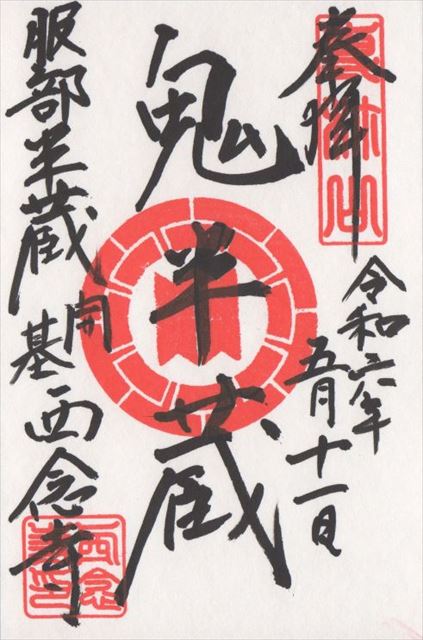 奉拝
令和六年
五月十一日
鬼半蔵
服部半蔵開基西念寺